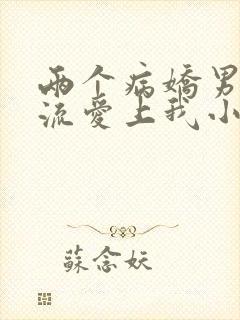 两个病娇男
流爱上我小
蘇念妖